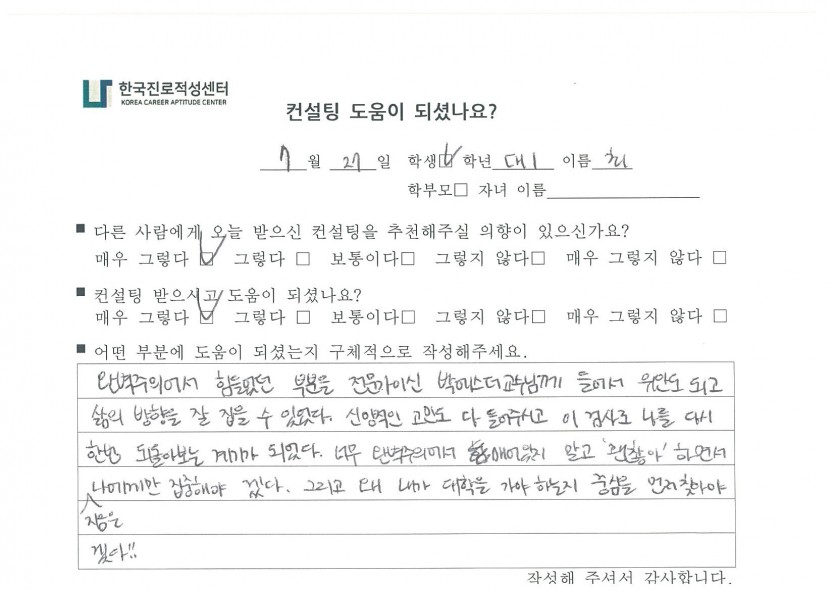 한국진로적성센터
KOREA CAREER APTITUDE CENTER
컨설팅 도움이 되셨나요?
7 월 27 일 학생☑ 학년 대1 이름 최
학부모□ 자녀 이름
■ 다른 사람에게 오늘 받으신 컨설팅을 추천해주실 의향이 있으신가요?
매우 그렇다 ☑ 그렇다 □ 보통이다□ 그렇지 않다□ 매우 그렇지 않다 □
■ 컨설팅 받으시고 도움이 되셨나요?
매우 그렇다 ☑ 그렇다 □ 보통이다□ 그렇지 않다□ 매우 그렇지 않다 □
■ 어떤 부분에 도움이 되셨는지 구체적으로 작성해주세요.
완벽주의에서 힘들었던 부분을 전문가이신 박에스더교수님께 들어서 위안도 되고
삶의 방향을 잘 잡을 수 있었다. 신앙적인 고민도 다 들어주시고 이 검사로 나를 다시
한번 되돌아보는 계기가 되었다. 너무 완벽주의에서 헤매이지 말고 '괜찮아' 하면서
나에게만 집중해야 겠다. 그리고 왜 내가 대학을 가야 하는지 중심을 먼저 찾아야
지금은
겠다!!
작성해 주셔서 감사합니다.